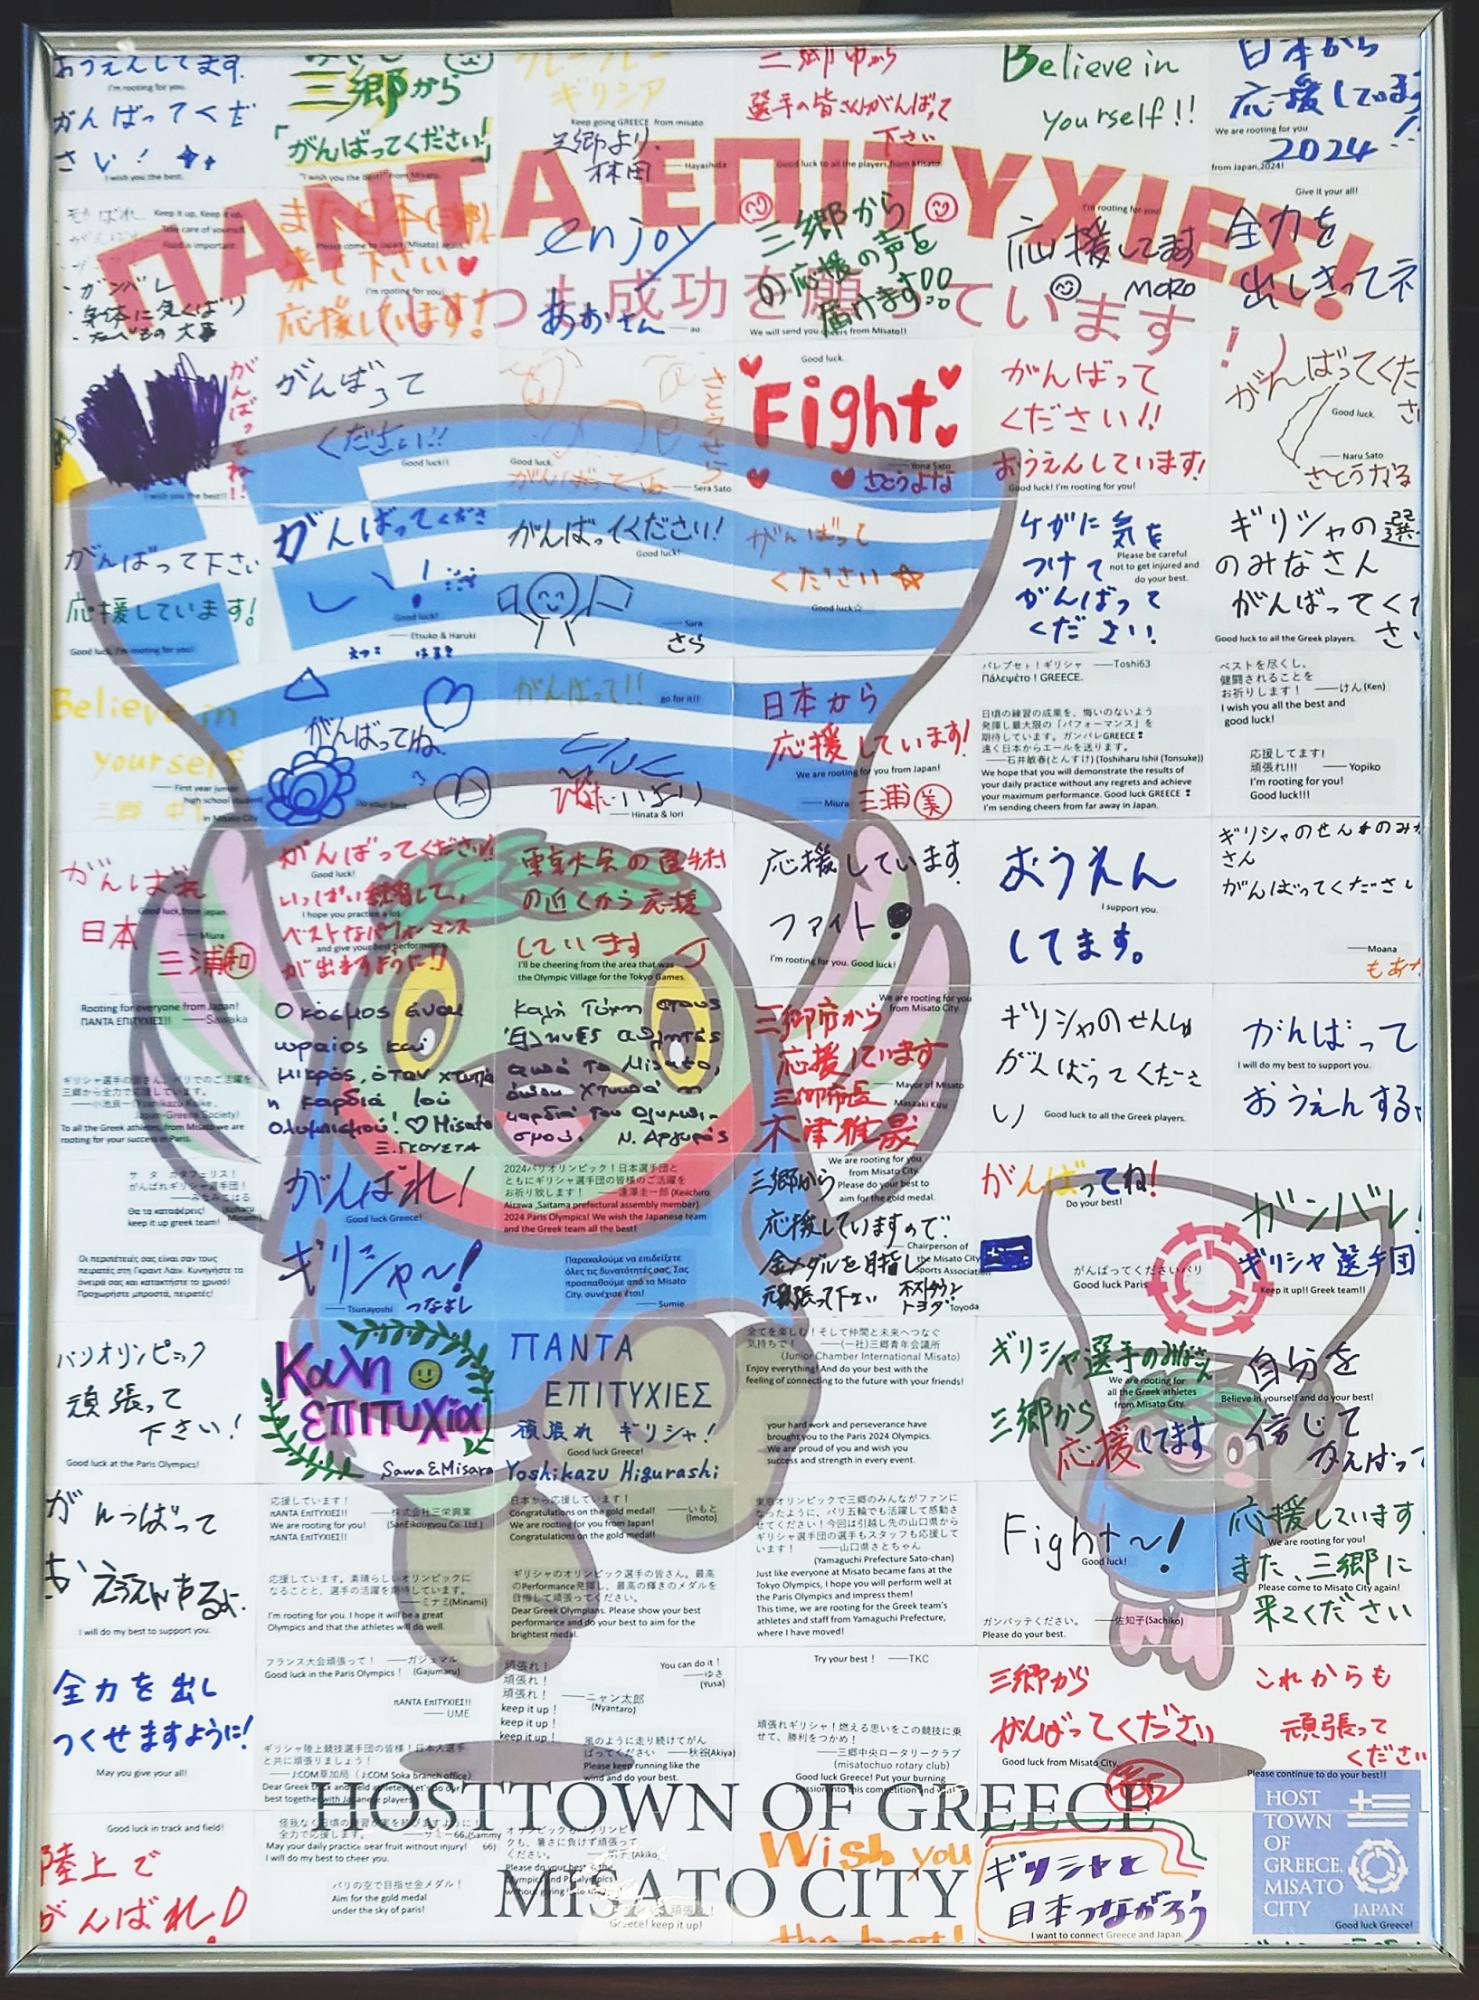 おうえんしてます.
I'm rooting for you.
がんばってくだ
さい!
I wish you the best.
三郷から
「がんばってください!」
"I wish you the best!" from Misato.
フレーフレー
ギリシア
Keep going GREECE from misato
三郷より.
林田
—— Hayashida
三郷中から
選手の皆さんがんばって
下さい
Good luck to all the players, from Misato.
Believe in
yourself!!
日本から
応援しています
We are rooting for you
2024
from Japan, 2024!
ΠΑΝΤΑ ΕΠΙΤΥΧΙΕΣ!
(いつも成功を願っています!)
Keep it up, Keep it up.
Take care of yourself.
Food is important.
・ガンバレ
・身体に気くばり
・たべもの 大事
また日本(三郷)に
Please come to Japan (Misato) again.
来て下さい
I'm rooting for you!
応援しています!
enjoy
あおさん
—— ao
三郷から
の応援の声を
届けます!!
We will send you cheers from Misato!!
I'm rooting for you!
応援してます
MORO
Give it your all!
全力を
出しきってネ
がんばってね!!
I wish you the best!!
がんばって
ください!!
Good luck!!
さとうせら
Good luck.
がんばってね
—— Sera Sato
Good luck.
Fight
—— Yona Sato
さとうよな
がんばって
ください!!
おうえんしています!
Good luck! I'm rooting for you!
がんばってくだ
さ
Good luck.
—— Naru Sato
さとうなる
がんばって下さい
応援しています!
Good luck, I'm rooting for you!
がんばってくださ
い!
Good luck!
—— Etsuko & Haruki
えつこ はるき
がんばってください!
Good luck!
—— Sara
さら
がんばって
ください☆
Good luck☆
ケガに気を
つけて
がんばって
ください.
Please be careful
not to get injured and
do your best.
ギリシャの選
のみなさん
がんばってく
さ
Good luck to all the Greek players.
Believe in
yourself
—— First year junior
high school student
三郷 中
in Misato City
がんばってね.
Do your best.
がんばって!!
go for it!!
ひなた いおり
—— Hinata & Iori
日本から
応援しています!
We are rooting for you from Japan!
—— Miura
三浦 美
パレプセト!ギリシャ ——Toshi63
Πάλεψέτο ! GREECE.
日頃の練習の成果を、悔いのないよう
発揮し最大限の「パフォーマンス」を
期待しています。ガンバレGREECE❢
遠く日本からエールを送ります。
——石井敏春(とんすけ) (Toshiharu Ishii (Tonsuke))
We hope that you will demonstrate the results of
your daily practice without any regrets and achieve
your maximum performance. Good luck GREECE ❢
I'm sending cheers from far away in Japan.
ベストを尽くし、
健闘されることを
お祈りします! ——けん(Ken)
I wish you all the best and
good luck!
応援してます!
頑張れ!!! —— Yopiko
I'm rooting for you!
Good luck!!!
がんばれ
Good luck, from japan.
日本
—— Miura
三浦和
がんばってください!
Good luck!
いっぱい練習して,
I hope you practice a lot
ベストなパフォーマンス
and give your best performance
が出ますように!!
東京大会の選手村
の近くから応援
しています
I'll be cheering from the area that was
the Olympic Village for the Tokyo Games.
応援しています
ファイト!
I'm rooting for you. Good luck!
おうえん
I support you.
してます。
ギリシャのせんしゅのみな
さん
がんばってくださ
——Moana
もあな
Rooting for everyone from Japan!
ΠΑΝΤΑ ΕΠΙΤΥΧΙΕΣ!! ——Sawaka
ギリシャ選手の皆さん、パリでのご活躍を
三郷から全力で応援しています。
——小池良一(Yoshikazu Koike ,
Japan-Greece Society)
To all the Greek athletes, from Misato we are
rooting for your success in Paris.
Ο κόσμος είναι
ωραίος και
μικρός, όταν χτυπα
η καρδιά του
Ολυμπισμού! ♡ Misato
Ξ. ΓΚΟΥΣΤΑ
Καλή Τύχη στους
Έλληνες αθλητές
από το Misato,
όπου χτυπά η
καρδιά του Ολυμπι-
σμού. Ν. Αργυρός
We are rooting for you
from Misato City
三郷市から
応援しています
—— Mayor of Misato
Masaaki Kizu
三郷市長
木津雅晟
ギリシャのせんしゅ
がんばってくださ
い
Good luck to all the Greek players.
がんばって
I will do my best to support you.
おうえんするよ
サ タ カタフェリス!
がんばれギリシャ選手団!
——みなみてはる
(Koharu Minami)
Θα τα καταφέρεις!
keep it up greek team!
がんばれ!
Good luck Greece!
ギリシャ~!
—— Tsunayoshi
つなよし
2024パリオリンピック!日本選手団と
ともにギリシャ選手団の皆様のご活躍を
お祈り致します! ——逢澤圭一郎 (Keiichiro
Aizawa ,Saitama prefectural assembly member)
2024 Paris Olympics! We wish the Japanese team
and the Greek team all the best!
We are rooting for you
from Misato City.
Please do your best to
aim for the gold medal.
三郷から
応援していますので
金メダルを目指し
頑張って下さい
—— Chairperson of
the Misato City
Sports Association
ホストタウン
トヨダ
Toyoda
がんばってね!
Do your best!
がんばってくださいパリ
Good luck Paris
ガンバレ!
ギリシャ選手団
Keep it up!! Greek team!!
Οι περιπέτειές σας είναι σαν τους
πειρατές στη Γκραντ Λάιν. Κυνηγήστε τα
όνειρά σας και κατακτήστε το χρυσό!
Προχωρήστε μπροστά, πειρατές!
Παρακαλούμε να επιδείξετε
όλες τις δυνατότητές σας. Σας
προσπαθούμε από το Misato
City, συνέχισε έτσι!
—— Sumie
パリオリンピック
頑張って
下さい!
Good luck at the Paris Olympics!
Καλη
επιτυχία
Sawa & Misara
ΠΑΝΤΑ
ΕΠΙΤΥΧΙΕΣ
頑張れ ギリシャ!
Good luck Greece!
Yoshikazu Higurashi
全てを楽しむ!そして仲間と未来へつなぐ
気持ちで! ——(一社)三郷青年会議所
(Junior Chamber International Misato)
Enjoy everything! And do your best with the
feeling of connecting to the future with your friends!
your hard work and perseverance have
brought you to the Paris 2024 Olympics.
We are proud of you and wish you
success and strength in every event.
ギリシャ選手のみなさん
We are rooting for
all the Greek athletes
from Misato City.
三郷から
応援してます
自分を
Believe in yourself and do your best!
信じて
がんばっ
がんばって
おうえんするよ.
I will do my best to support you.
応援しています!
πΑΝΤΑ ΕπΙΤΥΧΙΕΣ!! ——株式会社三栄興業
We are rooting for you! (SanEikougyou Co. Ltd.)
πΑΝΤΑ ΕπΙΤΥΧΙΕΣ!!
応援しています。素晴らしいオリンピックに
なることと、選手の活躍を期待しています。
——ミナミ(Minami)
I'm rooting for you. I hope it will be a great
Olympics and that the athletes will do well.
日本から応援しています!
Congratulations on the gold medal! ——いもと
We are rooting for you from Japan! (Imoto)
Congratulations on the gold medal!
ギリシャのオリンピック選手の皆さん。最高
のPerformance発揮し、最高の輝きのメダルを
目指して頑張ってください。
Dear Greek Olympians. Please show your best
performance and do your best to aim for the
brightest medal.
東京オリンピックで三郷のみんながファンに
なったように、パリ五輪でも活躍して感動さ
せてください!今回は引越し先の山口県から
ギリシャ選手団の選手もスタッフも応援して
います! ——山口県さとちゃん
(Yamaguchi Prefecture Sato-chan)
Just like everyone at Misato became fans at the
Tokyo Olympics, I hope you will perform well at
the Paris Olympics and impress them!
This time, we are rooting for the Greek team's
athletes and staff from Yamaguchi Prefecture,
where I have moved!
Fight~!
Good luck!
ガンバッテください。 ——佐知子(Sachiko)
Please do your best.
応援しています.
We are rooting for you!
また、三郷に
Please come to Misato City again!
来てください
全力を出し
つくせますように!
May you give your all!
フランス大会頑張って! ——ガジュマル
Good luck in the Paris Olympics ! (Gajumaru)
πΑΝΤΑ ΕπΙΤΥΧΙΕΣ!!
—— UME
ギリシャ陸上競技選手団の皆様!日本人選手
と共に頑張りましょう!
——J:COM草加局 ( J:COM Soka branch office)
Dear Greek track and field athletes! Let's do our
best together with Japanese players.
頑張れ!
頑張れ!
頑張れ! ——ニャン太郎
keep it up ! (Nyantaro)
keep it up !
keep it up !
You can do it !
——ゆさ
(Yusa)
風のように走り続けてがん
ばってください ——秋谷(Akiya)
Please keep running like the
wind and do your best.
Try your best ! ——TKC
頑張れギリシャ!燃える思いをこの競技に乗
せて、勝利をつかめ!
——三郷中央ロータリークラブ
(misatochuo rotary club)
Good luck Greece! Put your burning
passion into this competition and win!
三郷から
がんばってください
Good luck from Misato City.
これからも
頑張って
ください
Please continue to do your best!!
HOSTTOWN OF GREECE
MISATO CITY
Good luck in track and field!
陸上で
がんばれ!
怪我なく日頃の練習が実を結びますように
全力で応援します。 ——サミー66(Sammy 66)
May your daily practice bear fruit without injury!
I will do my best to cheer you.
パリの空で目指せ金メダル!
Aim for the gold medal
under the sky of paris!
Greece! keep it up!
Wish you
the best!
ギリシャと
日本つながろう
I want to connect Greece and Japan.
HOST
TOWN
OF
GREECE.
MISATO
CITY
JAPAN
Good luck Greece!